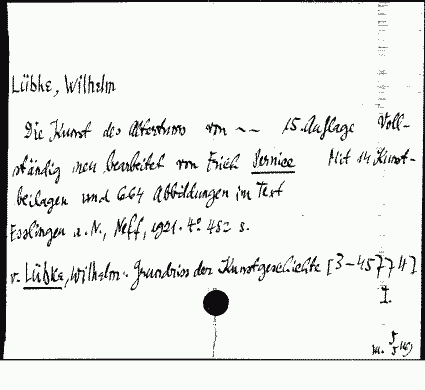 Lübke, Wilhelm
Die Kunst des Altertums von ~~ 15. Auflage Voll-
ständig neu bearbeitet von Erich Pernice Mit 14 Kunst-
beilagen und 664 Abbildungen im Text
Esslingen a. N., Neff, 1921. 4° 452 S.
v. Lübke, Wilhelm: Grundriss der Kunstgeschichte [3-45774]
I.